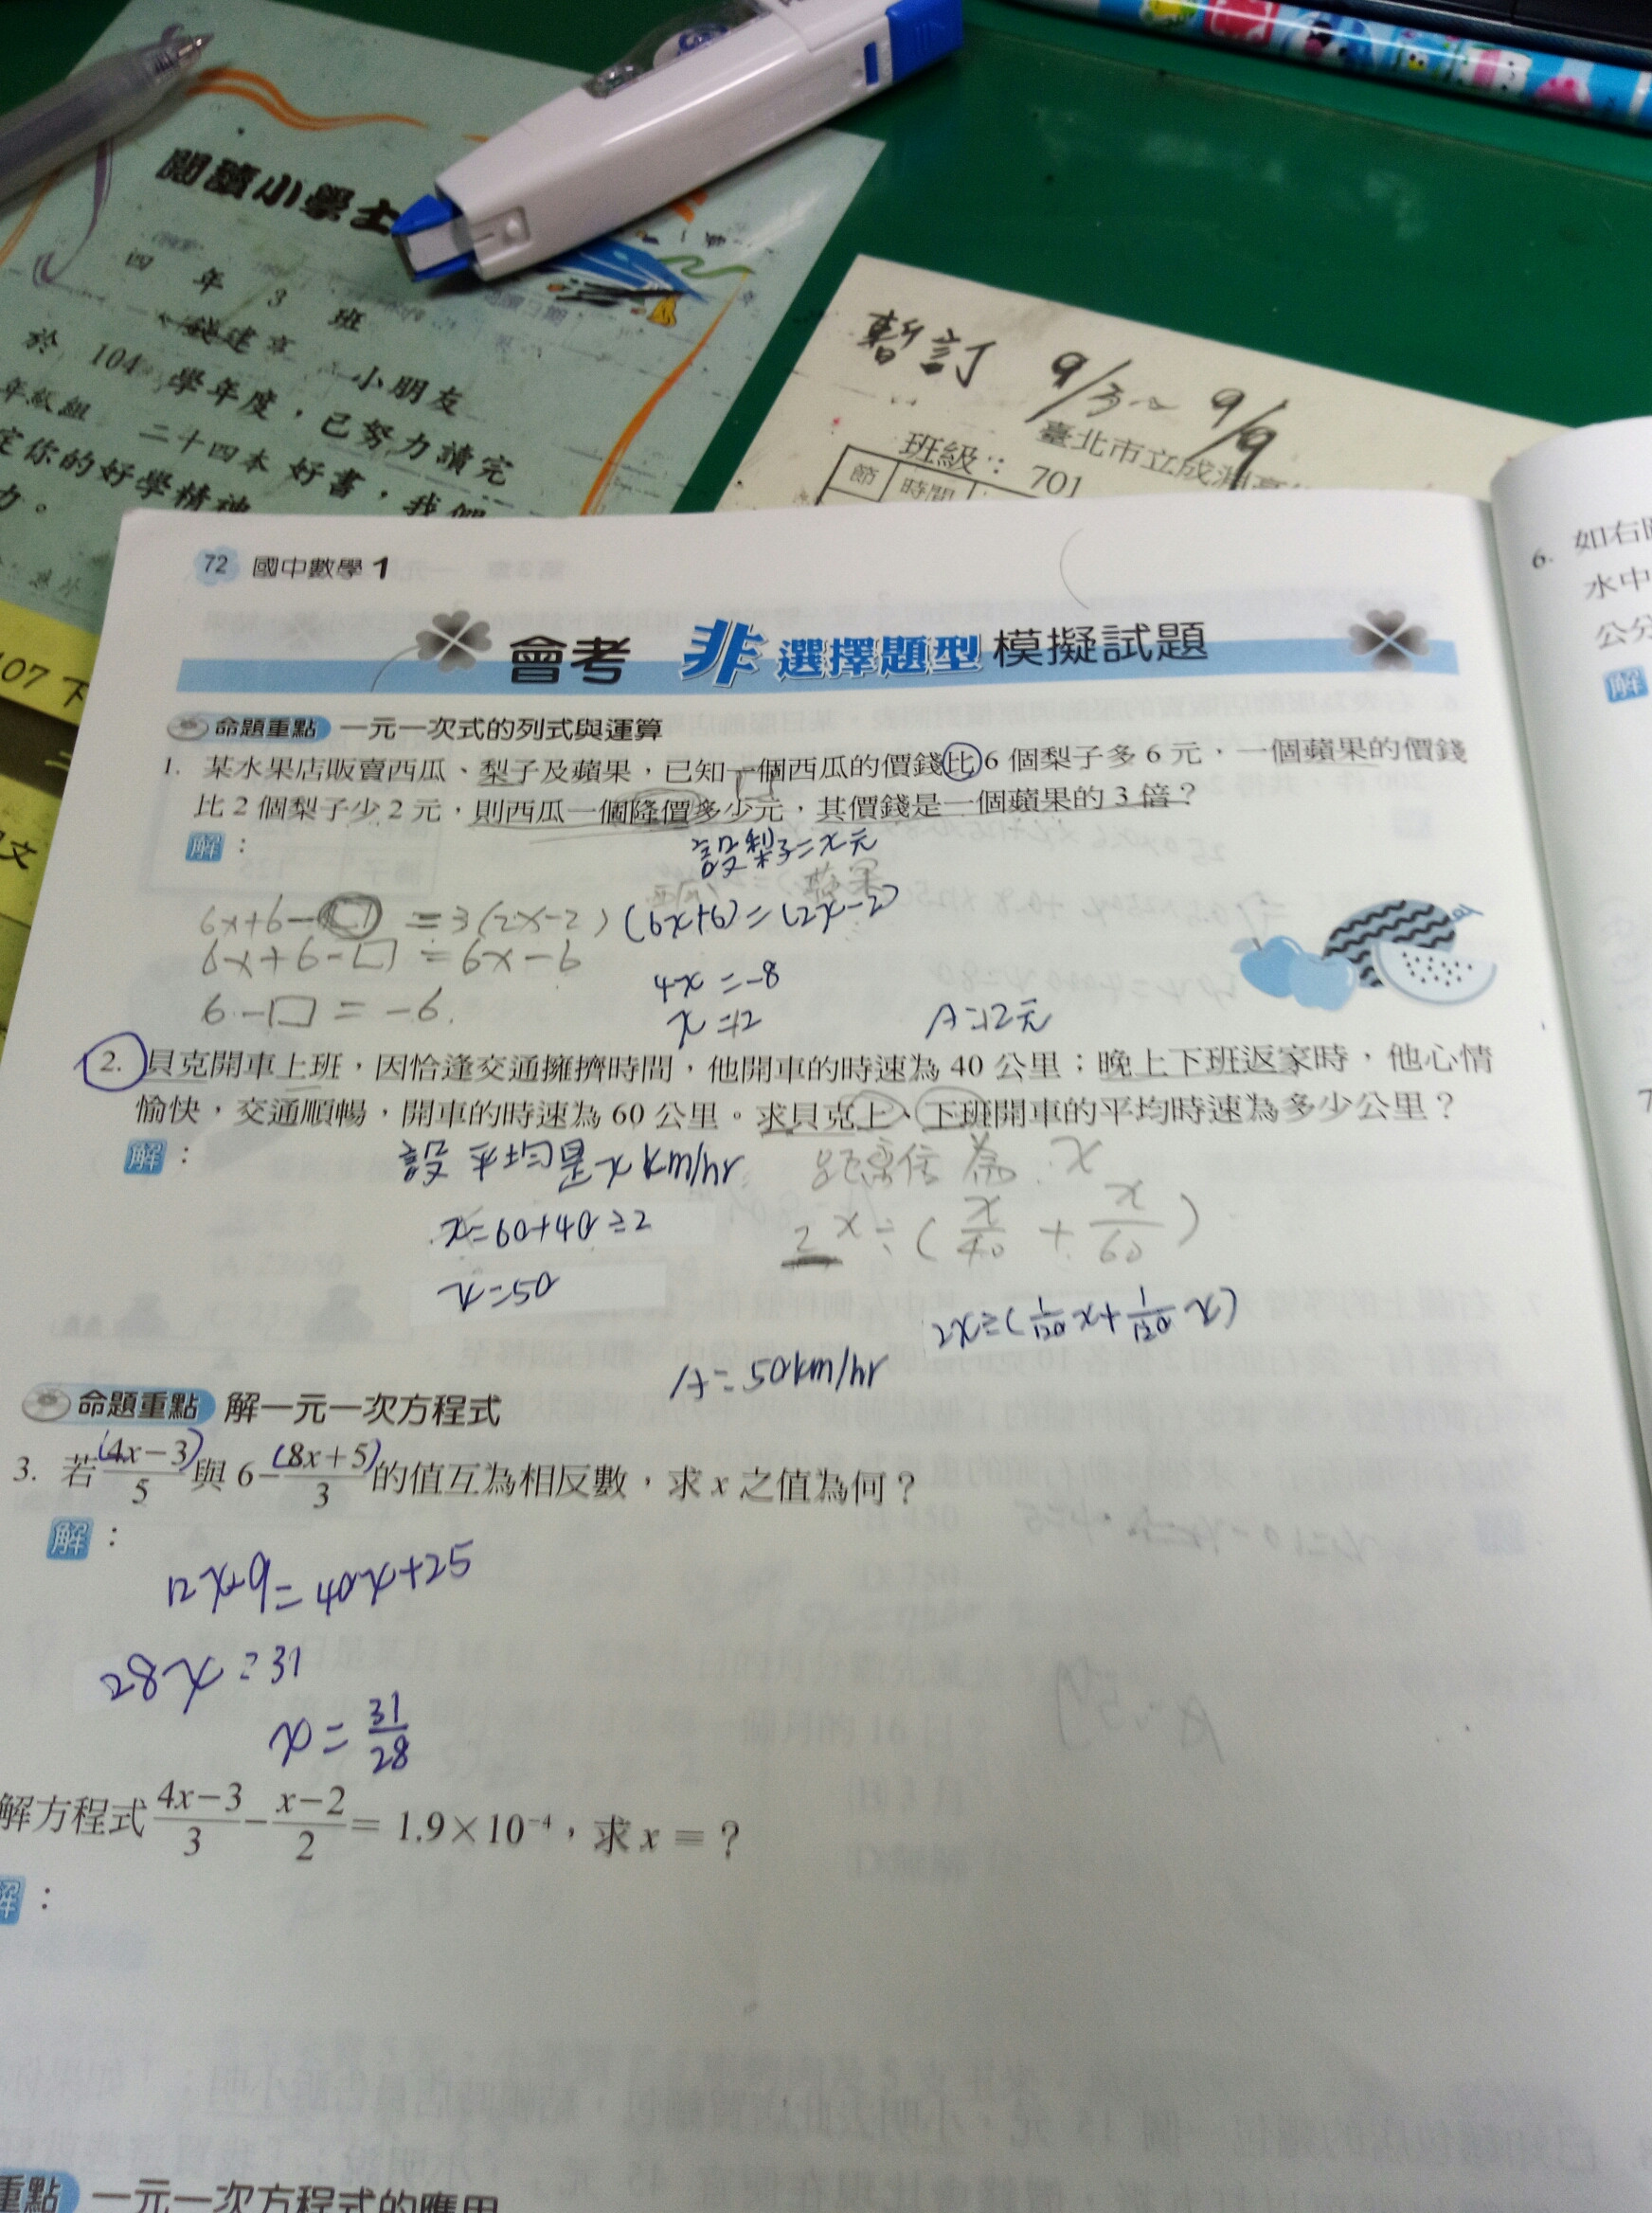 閱讀小學士
四 年 3 班
錢建章 小朋友
於 104 學年度，已努力讀完
年級組 二十四本好書，我們
定你的好學精神
力。
107 下
文
暫訂 9/3~9/9
臺北市立成淵高
班級： 701
節 時間
72 國中數學 1
會考 非選擇題型 模擬試題
命題重點 一元一次式的列式與運算
1. 某水果店販賣西瓜、梨子及蘋果，已知一個西瓜的價錢比 6 個梨子多 6 元，一個蘋果的價錢
比 2 個梨子少 2 元，則西瓜一個降價多少元，其價錢是一個蘋果的 3 倍？
解：
設梨子=x元
6x+6-□=3(2x-2) (6x+6)=(2x-2)
6x+6-□=6x-6
4x=-8
6-□=-6
x=+2
A=12元
2. 貝克開車上班，因恰逢交通擁擠時間，他開車的時速為 40 公里；晚上下班返家時，他心情
愉快，交通順暢，開車的時速為 60 公里。求貝克上、下班開車的平均時速為多少公里？
解：
x=60+40÷2
(x/60+x/40)÷x2
x=50
(x1/120+x1/120)÷x2
A=50km/hr
命題重點 解一元一次方程式
3. 若(4x-3)/5與 6-(8x+5)/3的值互為相反數，求 x 之值為何？
解：
12x+9=40x+25
28x=31
x=31/28
解方程式(4x-3)/3-(x-2)/2=1.9×10⁻⁴，求 x=？
解：
重點 一元一次方程式的應用
6. 如右
水中
公分
解
7